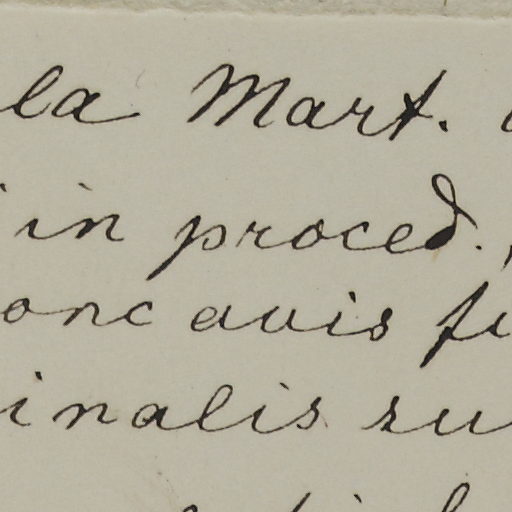 la Mart.
in proced.,
onc avis fu
inalis su